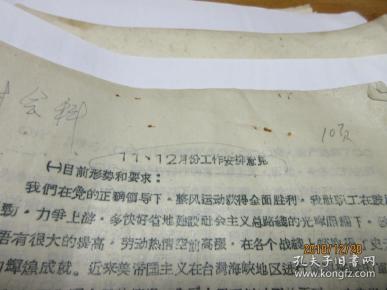 会科
10页
11、12月份工作安排意见
㈠目前形势和要求：
我們在党的正确領导下，整风运动获得全面胜利，我社职工在鼓足
劲，力爭上游，多快好省地建設社会主义总路綫的光輝照耀下，
悟有很大的提高，劳动热情空前高漲，在各个战綫上
的輝煌成就。近来美帝国主义在台灣海峽地区進
2019/12/28
孔夫子旧书网